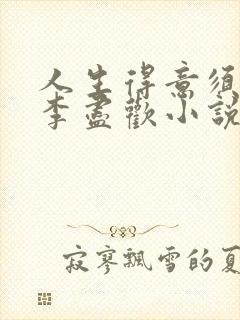 人生得意须
李盡歡小説
寂寥飄雪的夏